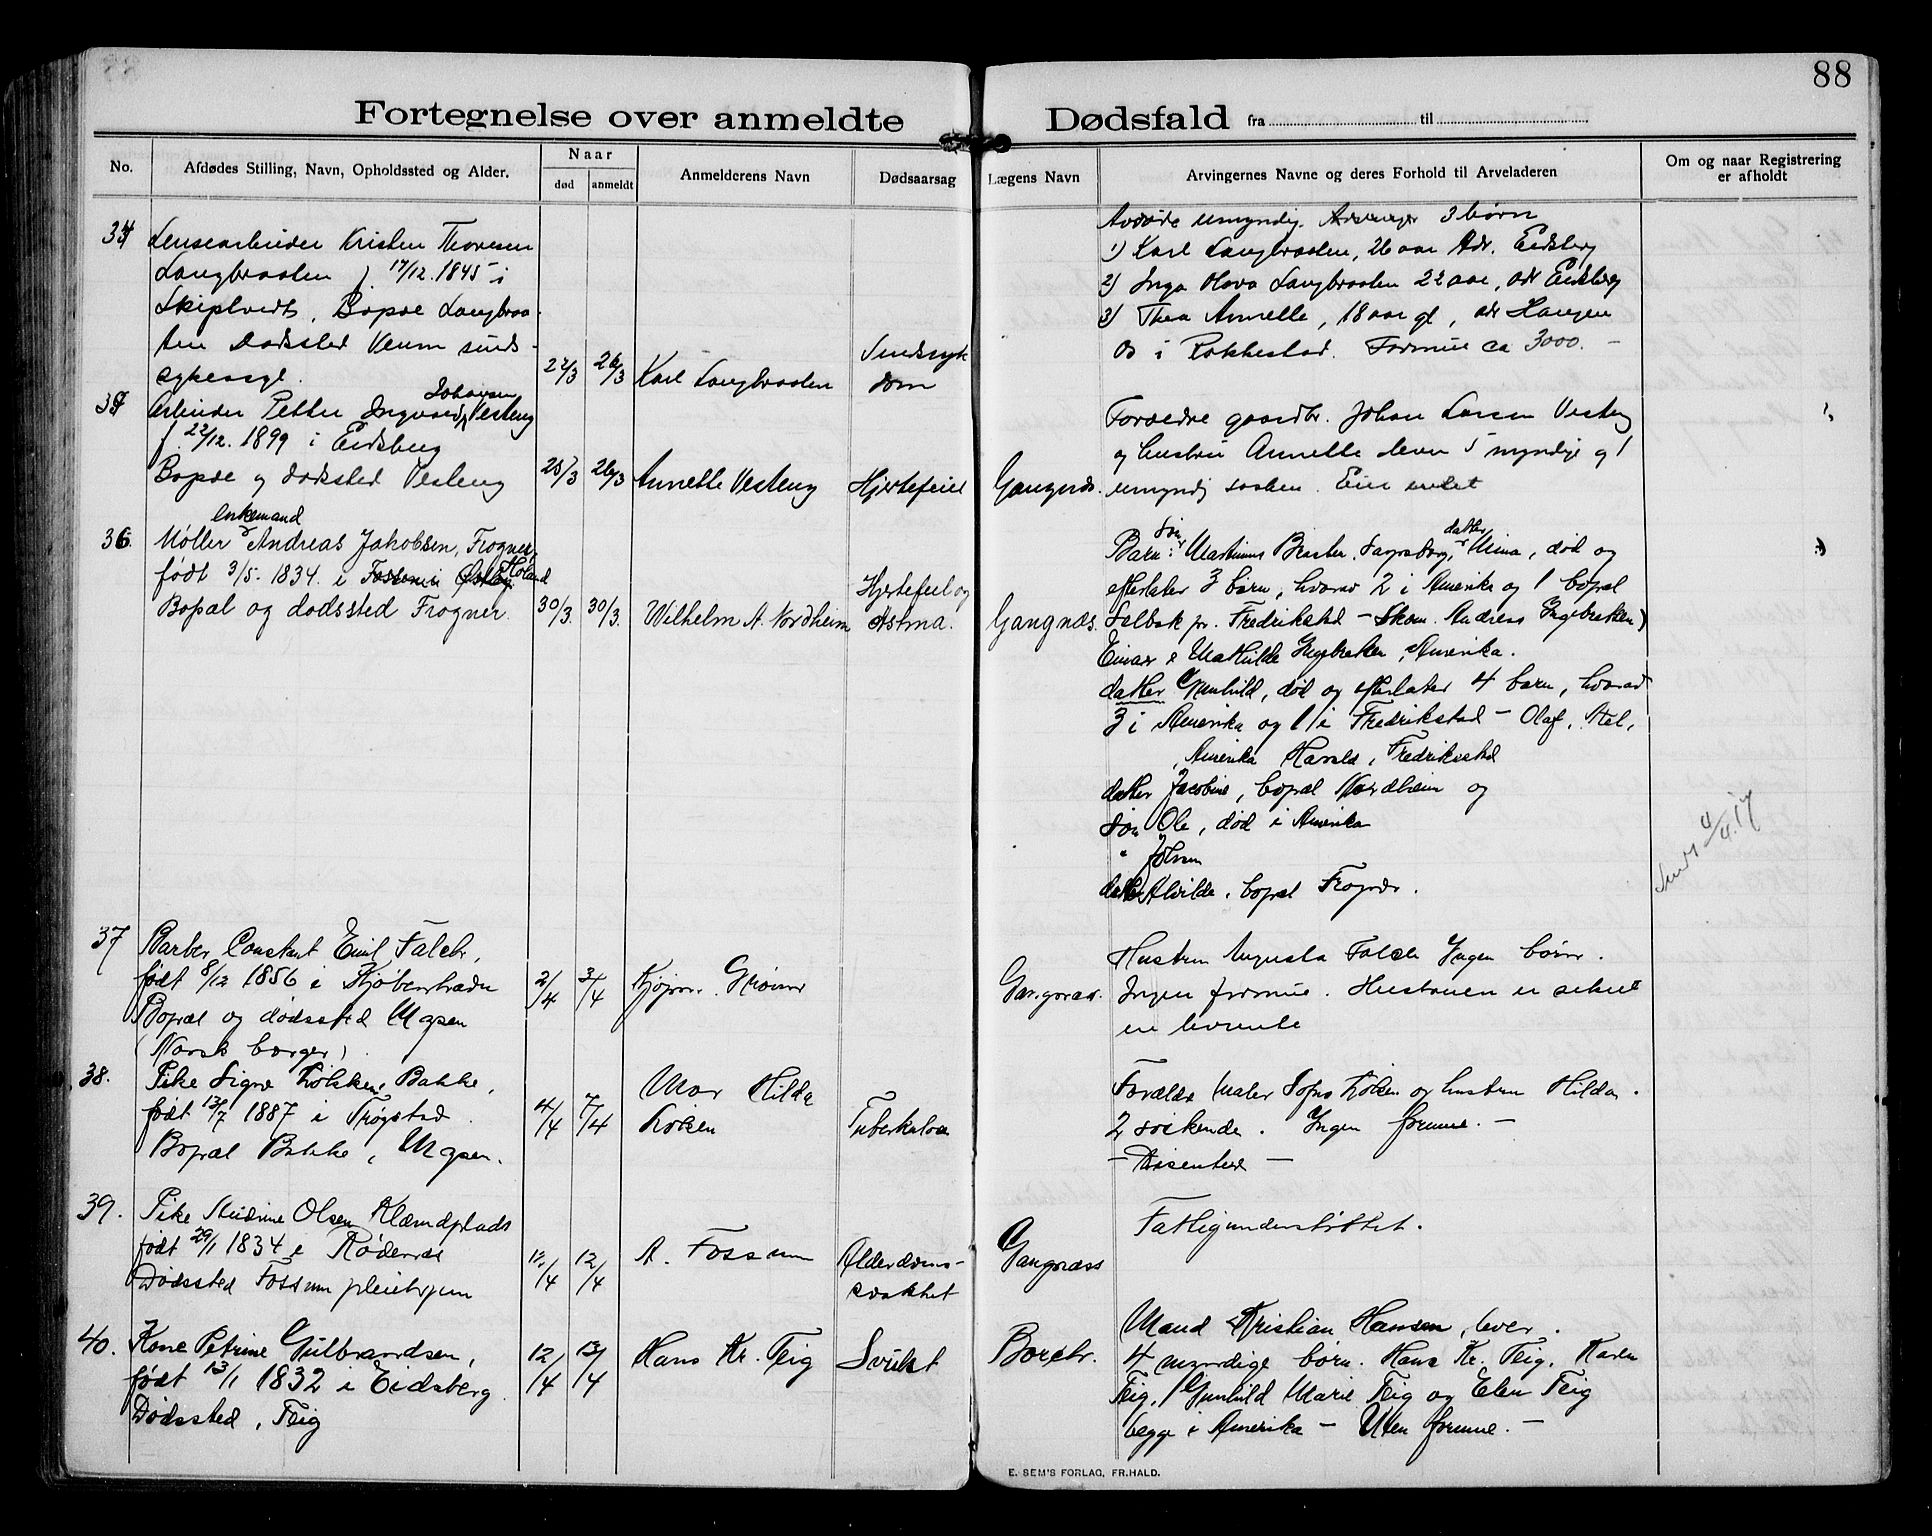 88
Fortegnelse over anmeldte Dødsfald fra til
No.
Afdødes Stilling, Navn, Opholdssted og Alder.
Naar
død
anmeldt
Anmelderens Navn
Dødsaarsag
Lægens Navn
Arvingernes Navne og deres Forhold til Arveladeren
Om og naar Registrering
er afholdt
34
Lensearbeider Kristen Thoresen
Langbraaten f. 17/12. 1845 i
Skiptvedt, Bopæl Langbraa-
ten Dødssted Veum sinds-
sykeasyl.
22/3
26/3
Karl Langbraaten
Sindssyk
dom
umyndig. 3 børn
1) Karl Langbraaten, 26 aar Adr. Eidsberg
2) Inga Olava Langbraaten 22 aar, adr Eidsberg
3) Thea Annette, 18 aar gl, adr Haugen
Os i Rakkestad. Formue ca 3000.-
35
Johansen
Arbeider Petter Ingvard Vesteng
f. 22/12. 1899 i Eidsberg
Bopæl og dødssted Vesteng
25/3
26/3
Annette Vesteng
Hjertefeil
Gangnæs.
Forældre gaardbr. Johan Larsen Vesteng
og hustru Annette lever 5 myndige og 1
umyndig søsken. Eier intet
36.
enkemand
Møller Andreas Jakobsen, Frogner,
født 3/5. 1834. i Høland
Bopæl og dødssted Frogner.
30/3.
30/3.
Wilhelm A. Nordheim
Hjertefeil og
Astma.
Gangnæs.
Søn datter
Barn: Martinus Sarpsborg, Mina, død og
efterlater 3 barn, hvorav 2 i Amerika og 1 bopæl
Selbak pr. Fredrikstad - Skom. Andreas Ingebretsen)
Einar & Mathilde Ingebretsen, Amerika.
datter Gunhild, død og efterlater 4 barn, hvorav
3 i Amerika og 1 i Fredrikstad - Olaf,
Amerika Harald, Fredrikstad
datter Jacobine, bopæl Nordheim og
søn Ole, død i Amerika
" Johan
datter Alvilde. bopæl Frogner.
Sendt 4/4.17
37
Barber Constant Emil Falch,
født 8/12 1856 i Kjøbenhavn
Bopæl og dødssted Mysen
(Norsk borger)
2/4
3/4
Kjøpm.
Gangnæs.
Hustru Augusta Falch Ingen børn.
Ingen formue. Hustruen er sikret
en livrente
38.
Pike Signe Løkken, Bakke,
født 13/7 1887 i Trøgstad
Bopæl Bakke, Mysen.
4/4
7/4
Mor Hilda
Løken
Tuberkulose
Forældre Maler Løken og hustru Hilda.
2 søskende. Ingen formue. -
39.
Pike Olsen
født 29/1 1834 i Rødenæs
Dødssted Fossum pleiehjem
12/4
12/4
A. Fossum
Alderdoms-
svakhet
Gangnæss
Fattigunderstøttet.
40.
Kone Petrine Gulbrandsen,
født 13/1 1832 i Eidsberg
Dødssted, Teig
12/4
13/4
Hans Kr. Teig
Svulst
Borchr.
Mand Kristian Hansen, lever.
4 myndige børn. Hans Kr. Teig. Karen
Teig, Gunhild Marie Teig og Elen Teig
begge i Amerika - Uten formue. -
E. SEM'S FORLAG, FR.HALD.